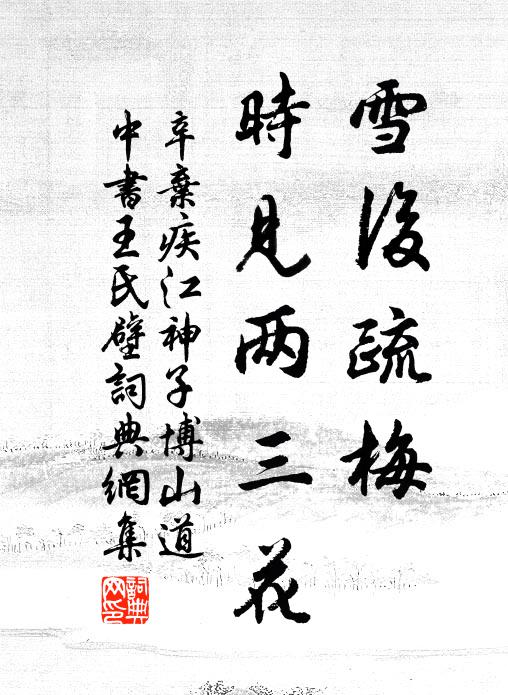 雪後疏梅
時見兩三花
辛棄疾江神子博山道
中書王氏壁詞典網集
詞典网印